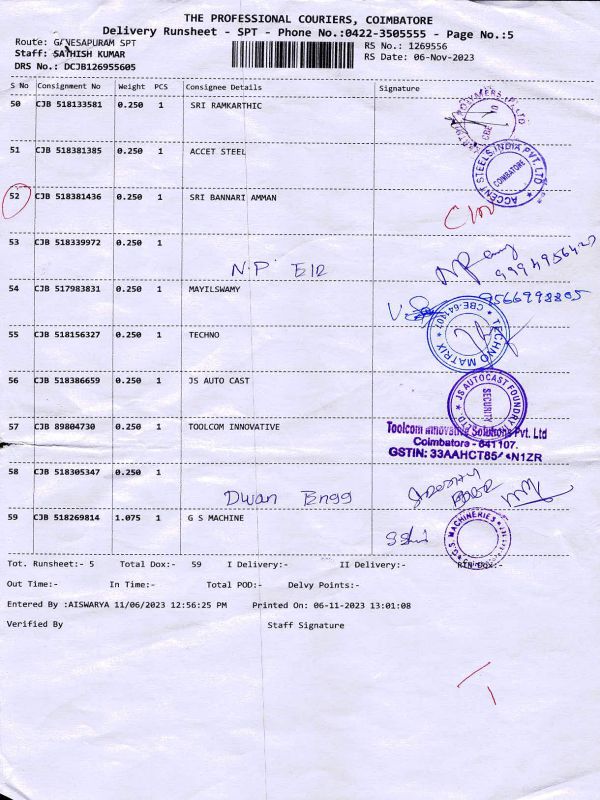 THE PROFESSIONAL COURIERS, COIMBATORE
Delivery Runsheet - SPT - Phone No.:0422-3505555 - Page No.:5
Route: GANESAPURAM SPT RS No.: 1269556
Staff: SATHISH KUMAR RS Date: 06-Nov-2023
DRS No.: DCJB126955605
S No Consignment No Weight PCS Consignee Details Signature
50 CJB 518133581 0.250 1 SRI RAMKARTHIC
51 CJB 518381385 0.250 1 ACCET STEEL
ACCENT STEELS INDIA PVT. LTD
COIMBATORE
52 CJB 518381436 0.250 1 SRI BANNARI AMMAN
53 CJB 518339972 0.250 1
N.P.
54 CJB 517983831 0.250 1 MAYILSWAMY
9566998805
55 CJB 518156327 0.250 1 TECHNO
TECHNO MATRIX
CBE-641107
56 CJB 518386659 0.250 1 JS AUTO CAST
JS AUTOCAST FOUNDRY
SECURITY
57 CJB 89804730 0.250 1 TOOLCOM INNOVATIVE
Toolcom Innovative Solutions Pvt. Ltd
Coimbatore - 641 107.
58 CJB 518305347 0.250 1
Dwan Engg
59 CJB 518269814 1.075 1 G S MACHINE
G.S. MACHINERIES
Tot. Runsheet:- 5 Total Dox:- 59 I Delivery:- II Delivery:- RTN Dox:-
Out Time:- In Time:- Total POD:- Delvy Points:-
Entered By :AISWARYA 11/06/2023 12:56:25 PM Printed On: 06-11-2023 13:01:08
Verified By Staff Signature